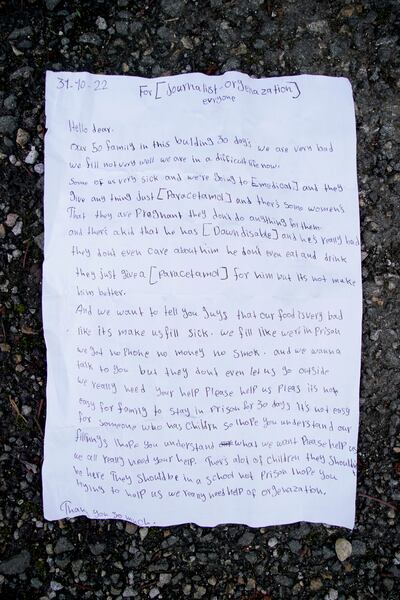 31-10-22
For [Journalist-orgenazation]
evryone
Hello dear.
Our 50 family in this building 30 days we are very bad
we fill not very well we are in a difficult life now.
Some of us very sick and we're going to Emodical] and they
give any thing Just [Paracetamol] and there's some women's
That they are Pregnant they don't do any thing for them
and there's a kid that he has [Down disable] and he's really bad
they don't even care about him he don't even eat and drink
they just give a [Paracetamol] for him but its not make
him better.
And we want to tell you guys that our food is very bad
like its make us fill sick. we fill like we're in Prison
we got no Phone no money no smok. and we wanna
talk to you but they dont even let us go outside
we really need your help Please help us Pleas its not
easy for family to stay in Prison for 30 days It's not easy
for someone who has children so hope you understand our
fillings I hope you understand what we want Please help us
we all really need your help. There's alot of children they should
be here They should be in a school not Prison I hope you
trying to help us we really need help of orgenazation.
Thank you so much.